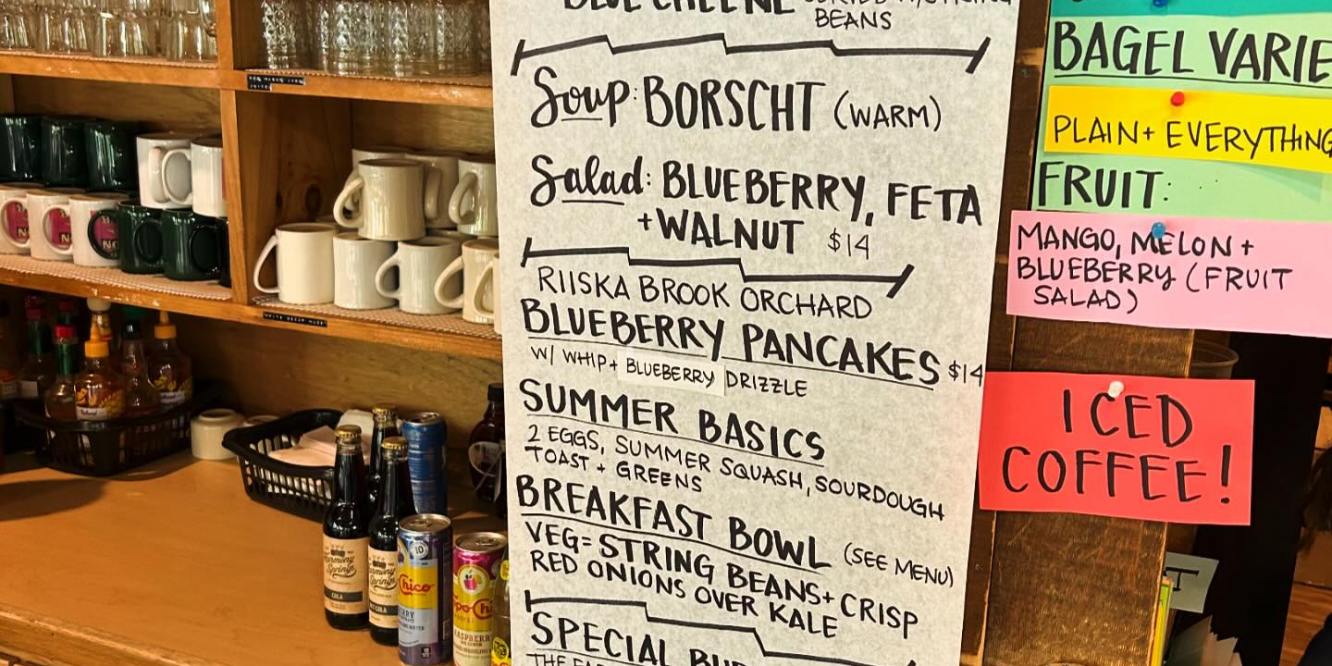 BEANS
Soup: BORSCHT (WARM)
Salad: BLUEBERRY, FETA
+WALNUT $14
RIISKA BROOK ORCHARD
BLUEBERRY PANCAKES $14
W/ WHIP+ BLUEBERRY DRIZZLE
SUMMER BASICS
2 EGGS, SUMMER SQUASH, SOURDOUGH
TOAST + GREENS
BREAKFAST BOWL (SEE MENU)
VEG= STRING BEANS+ CRISP
RED ONIONS OVER KALE
SPECIAL
BAGEL VARIE
PLAIN+ EVERYTHING
FRUIT:
MANGO, MELON +
BLUEBERRY (FRUIT
SALAD)
ICED
COFFEE!
COLA
Chico